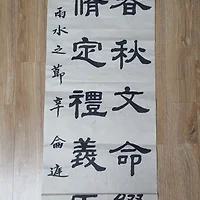 春秋文命
脩定禮義
雨水之節辛侖